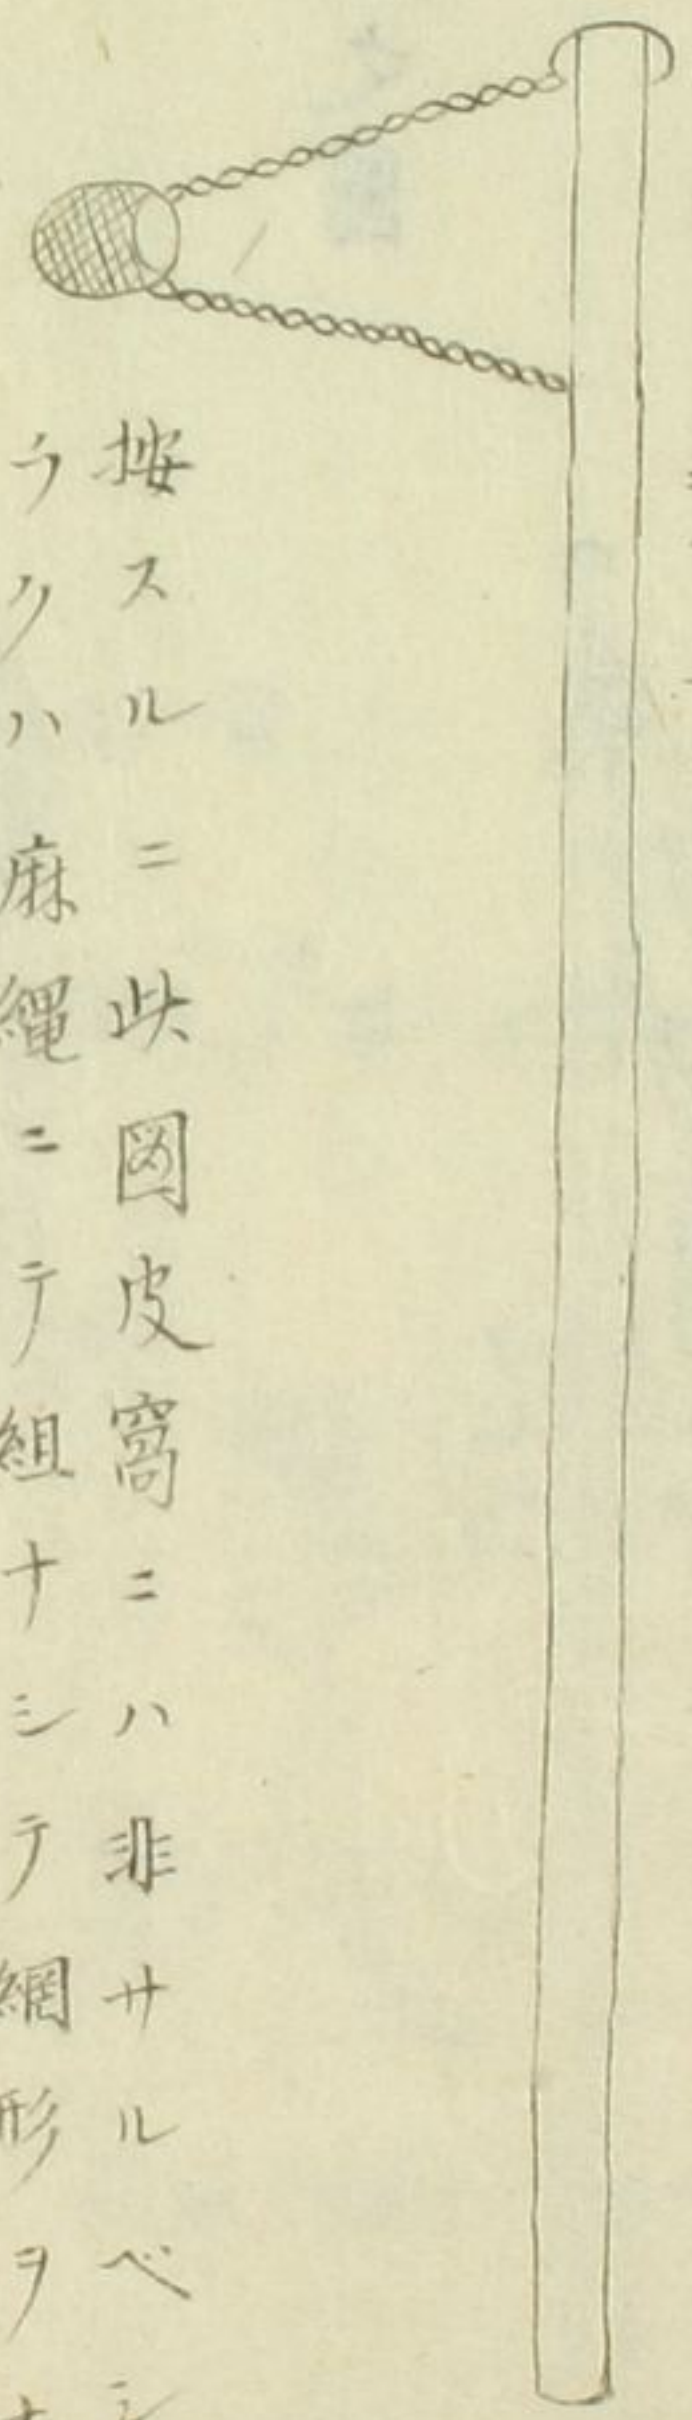 按スルニ此圖皮窩ニハ非サルベシ
ラクハ麻繩ニテ組ナシテ網形ヲ